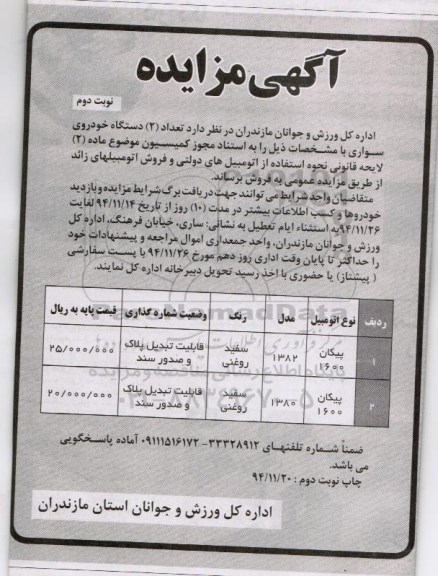 آگهی مزایده
نوبت دوم
اداره کل ورزش و جوانان مازندران در نظر دارد تعداد (۲) دستگاه خودروی
سواری با مشخصات ذیل را به استناد مجوز کمیسیون موضوع ماده (۲)
لایحه قانونی نحوه استفاده از اتومبیل های دولتی و فروش اتومبیلهای زائد
از طریق مزایده عمومی به فروش برساند.
متقاضیان واجد شرایط می توانند جهت دریافت برگ شرایط مزایده و بازدید
خودروها و کسب اطلاعات بیشتر در مدت (۱۰) روز از تاریخ ۹۴/۱۱/۱۴ لغایت
۹۴/۱۱/۲۶ به استثناء ایام تعطیل به نشانی: ساری، خیابان فرهنگ، اداره کل
ورزش و جوانان مازندران، واحد جمعداری اموال مراجعه و پیشنهادات خود
را حداکثر تا پایان وقت اداری روز دهم مورخ ۹۴/۱۱/۲۶ با پست سفارشی
( پیشتاز) یا حضوری با اخذ رسید تحویل دبیرخانه اداره کل نمایند.
ردیف نوع اتومبیل مدل رنگ وضعیت شماره گذاری قیمت پایه به ریال
۱ پیکان ۱۶۰۰ ۱۳۸۲ سفید روغنی قابلیت تبدیل پلاک و صدور سند ۲۵/۰۰۰/۰۰۰
۲ پیکان ۱۶۰۰ ۱۳۸۰ سفید روغنی قابلیت تبدیل پلاک و صدور سند ۲۰/۰۰۰/۰۰۰
ضمناً شماره تلفنهای ۳۳۳۲۸۹۱۲- ۰۹۱۱۱۵۱۶۱۷۲ آماده پاسخگویی
می باشد.
چاپ نوبت دوم : ۹۴/۱۱/۲۰
اداره کل ورزش و جوانان استان مازندران